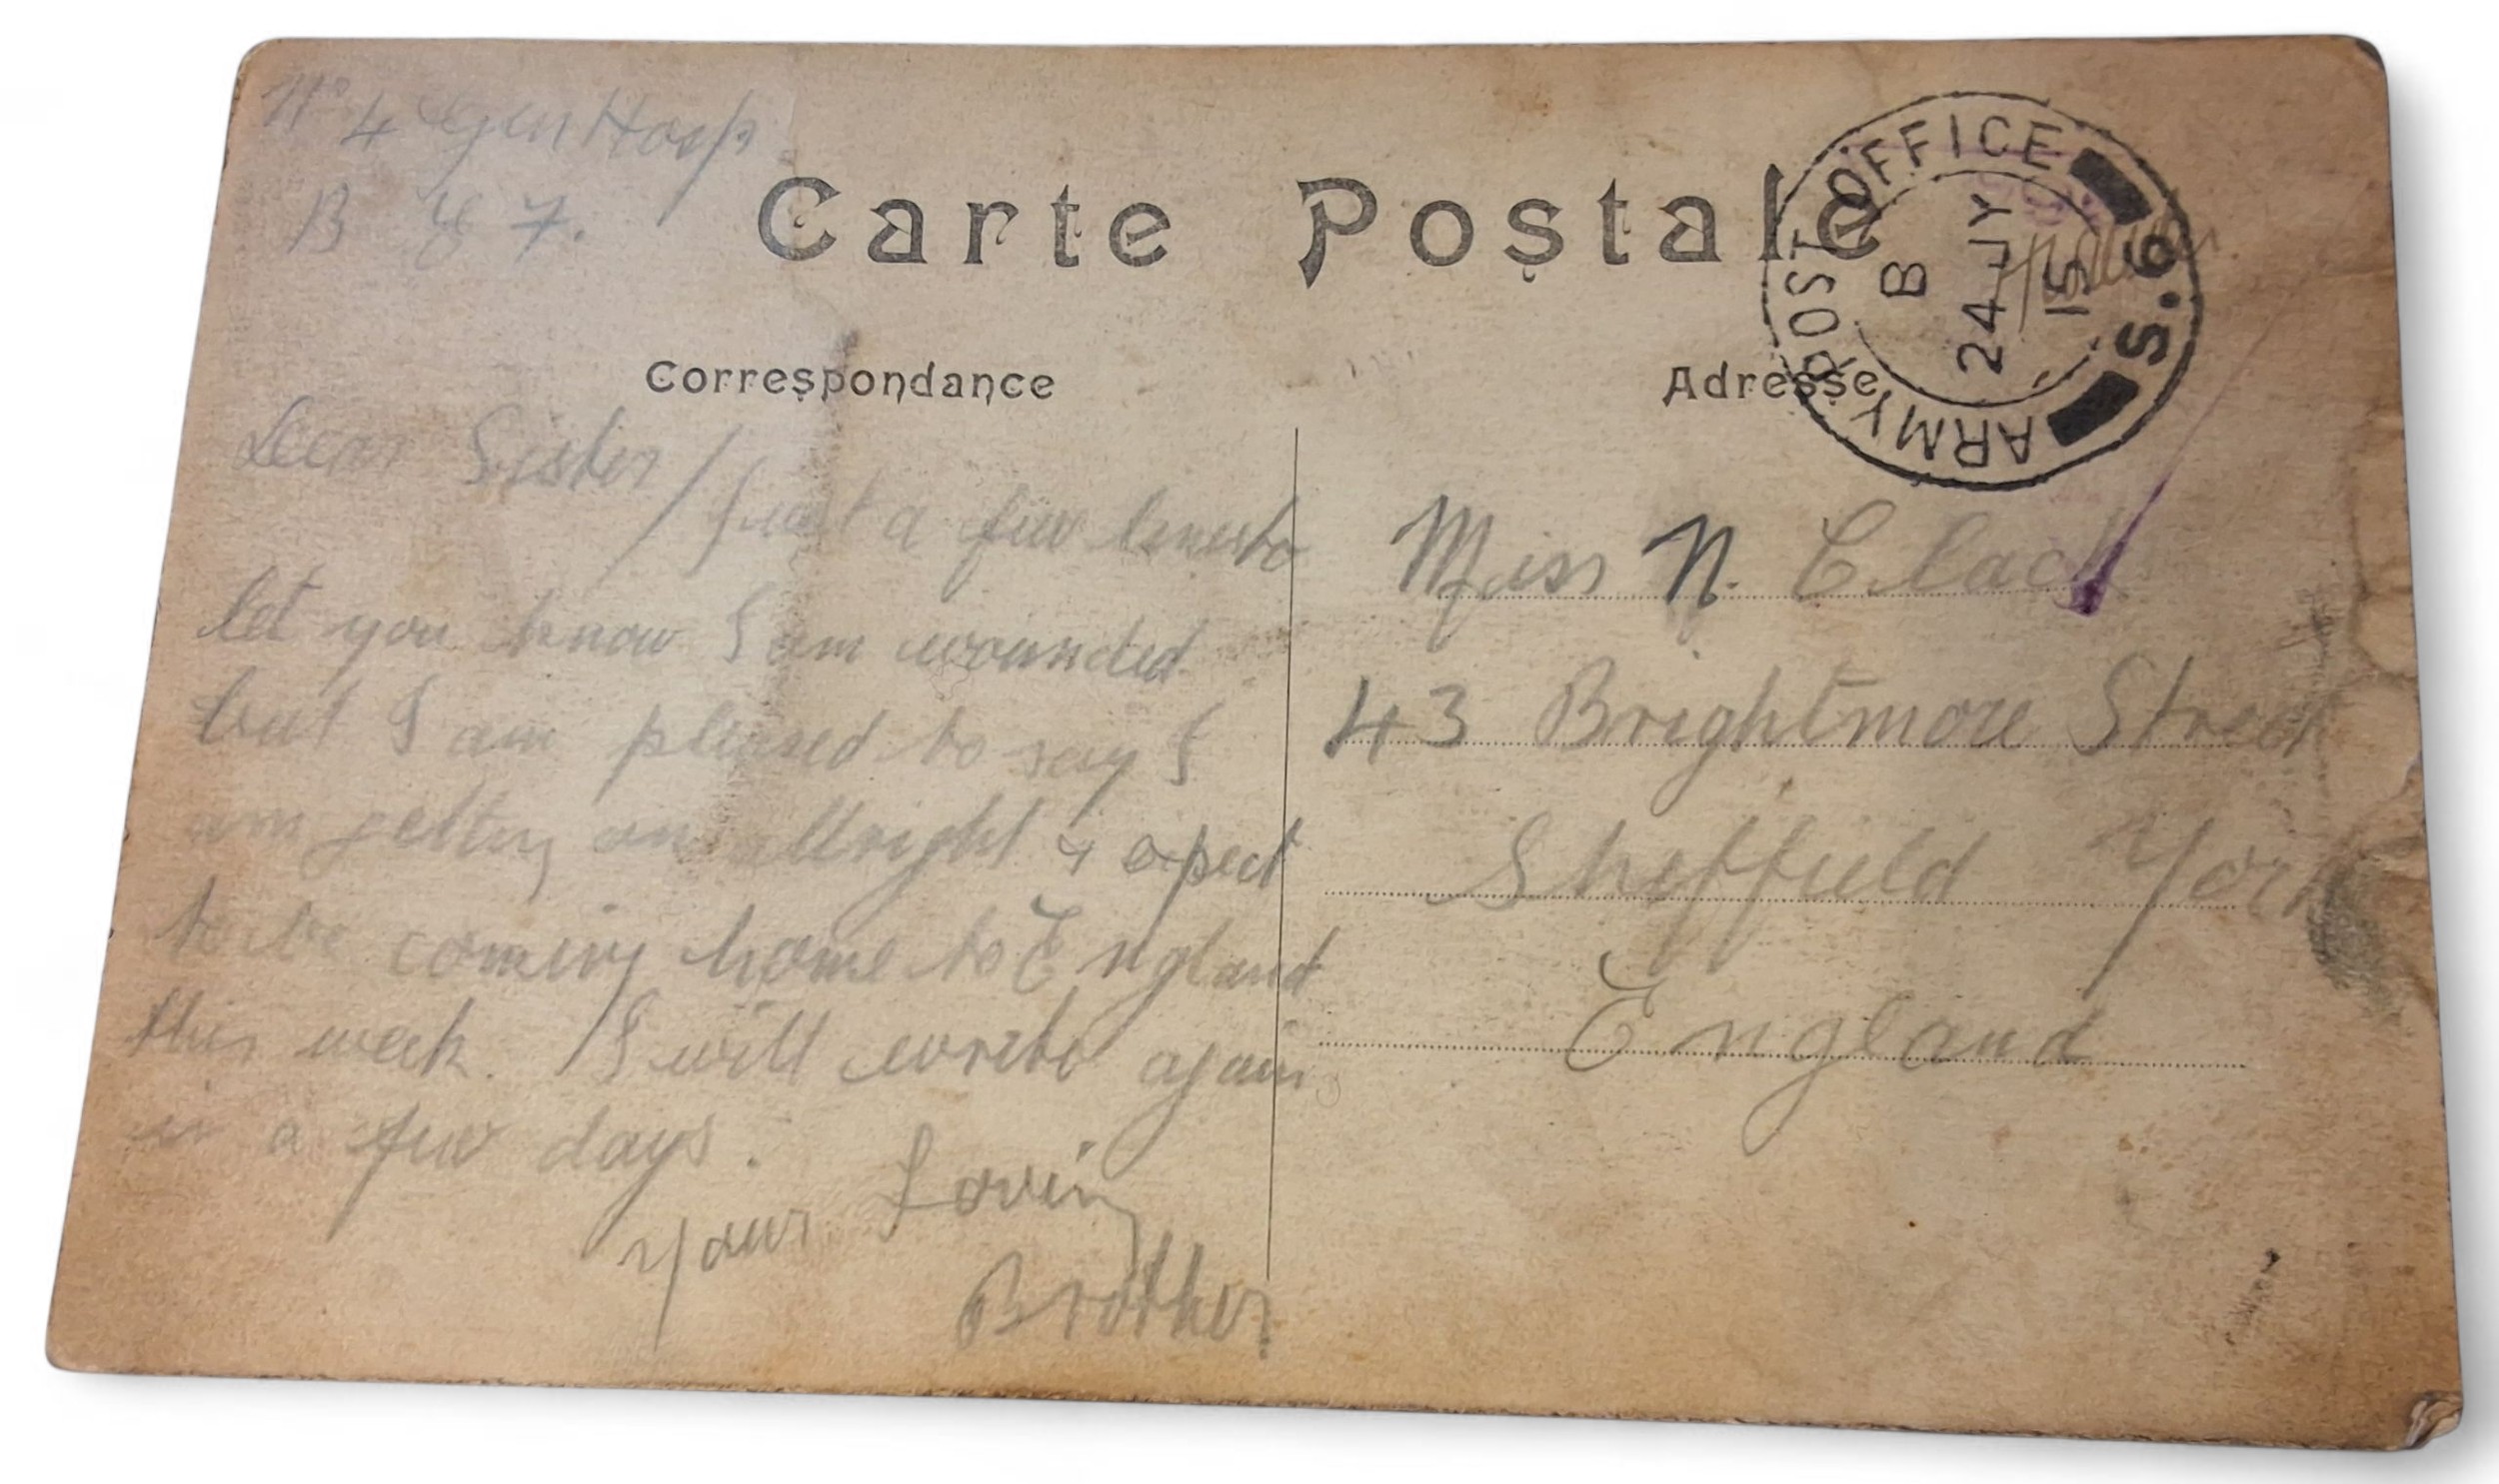 No 4 Gen Hosp
B E 7.
Carte Postale
ARMY POST OFFICE
S.6
B
24 JY
15
Correspondance
Adresse
Dear Sister / Just a few lines to
let you know I am wounded
but I am pleased to say I
am getting on allright & expect
to be coming home to England
this week. I will write again
in a few days.
Your Loving
Brother
Miss N. Clack
43 Brightmore Street
Sheffield York
England